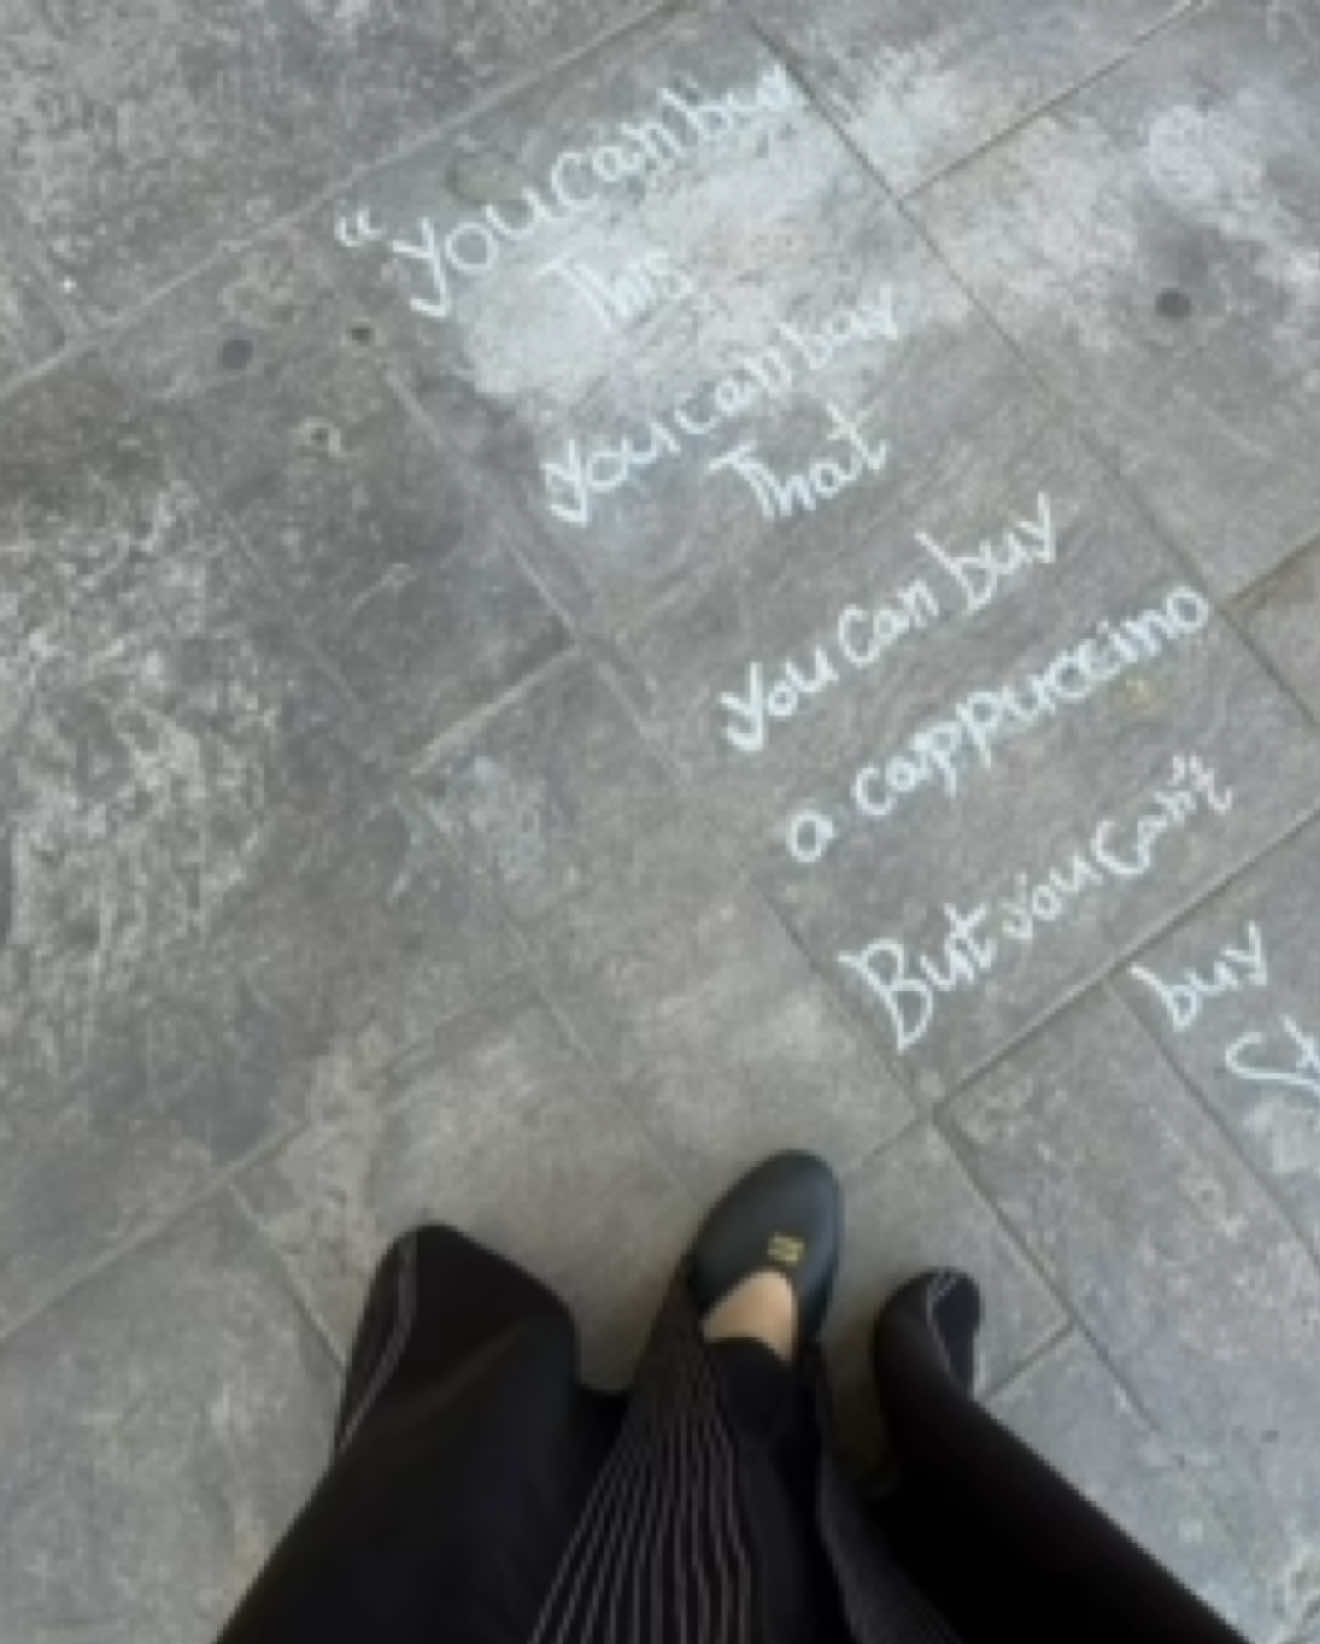 “you can buy
This
you can buy
That
you can buy
a cappuccino
But you can't
buy
St